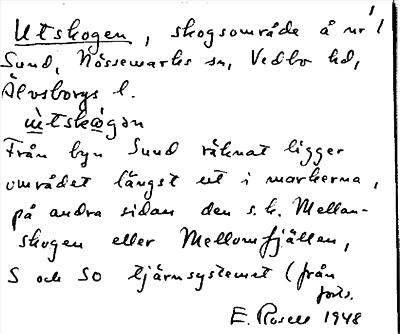 Utskogen, skogsområde å nr 1
Sund, Nössemarks sn, Vedbo hd,
Älvsborgs l.
ùtskògən
Från byn Sund räknat ligger
området längst ut i markerna,
på andra sidan den s.k. Mellan-
skogen eller Mellomfjällen,
S och SO tjärnsystemet (från
forts.
E. Rosell 1948